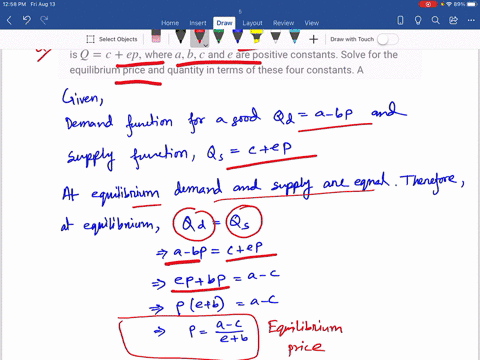 12:56 PM Fri Aug 13
6
89%
Home Insert Draw Layout Review View
Select Objects
Draw with Touch
is Q = c + ep, where a, b, c and e are positive constants. Solve for the
equilibrium price and quantity in terms of these four constants. A
Given,
Demand function for a good Qd = a-bp and
supply function, Qs = c+ep
At equilibrium demand and supply are equal. Therefore,
at equilibrium, Qd = Qs
⇒ a-bp = c+ep
⇒ ep+bp = a-c
⇒ p(e+b) = a-c
⇒ p = a-c/e+b Equilibrium
price